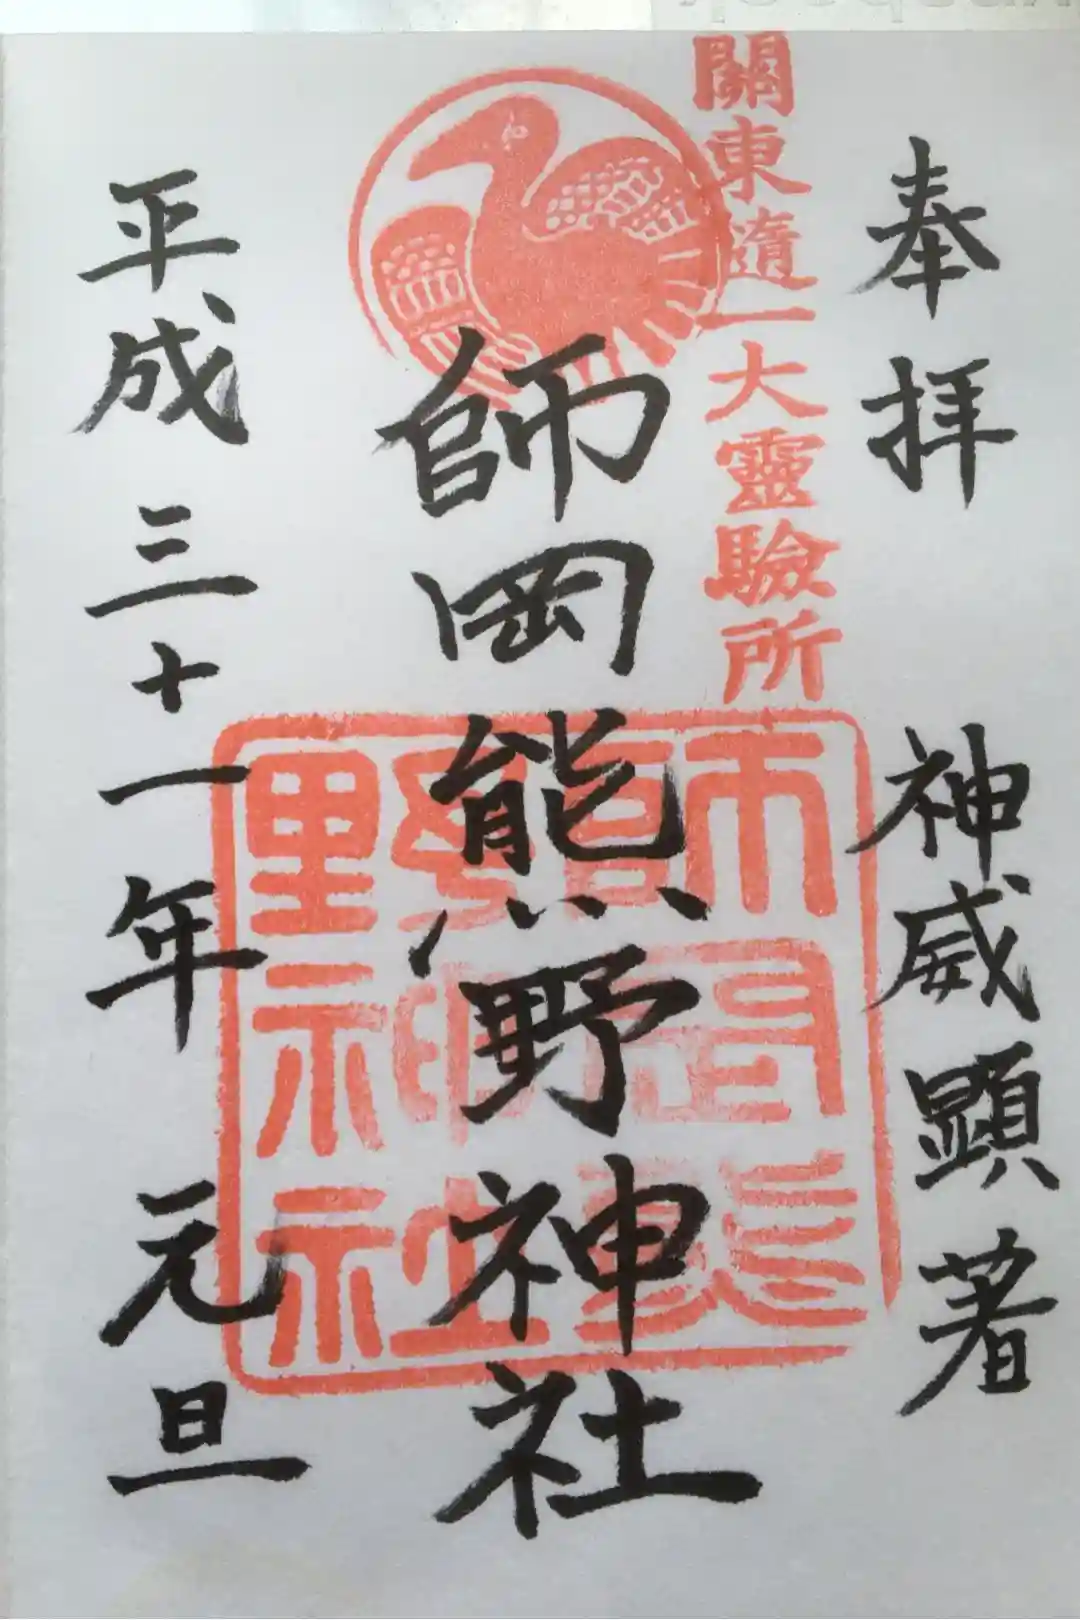 奉拝 神威顕著
關東随一大靈驗所
師岡熊野神社
師岡熊野神社
平成三十一年元旦